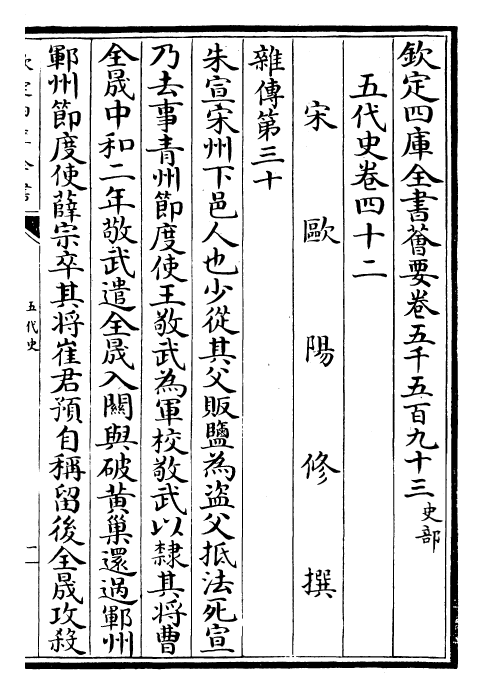 欽定四庫全書薈要卷五千五百九十三史部
五代史卷四十二
宋歐陽修撰
雜傳第三十
朱宣宋州下邑人也少從其父販鹽為盜父抵法死宣
乃去事青州節度使王敬武為軍校敬武以隸其將曹
全晟中和二年敬武遣全晟入關與破黃巢還過鄆州
鄆州節度使薛宗卒其將崔君預自稱留後全晟攻殺
五代史